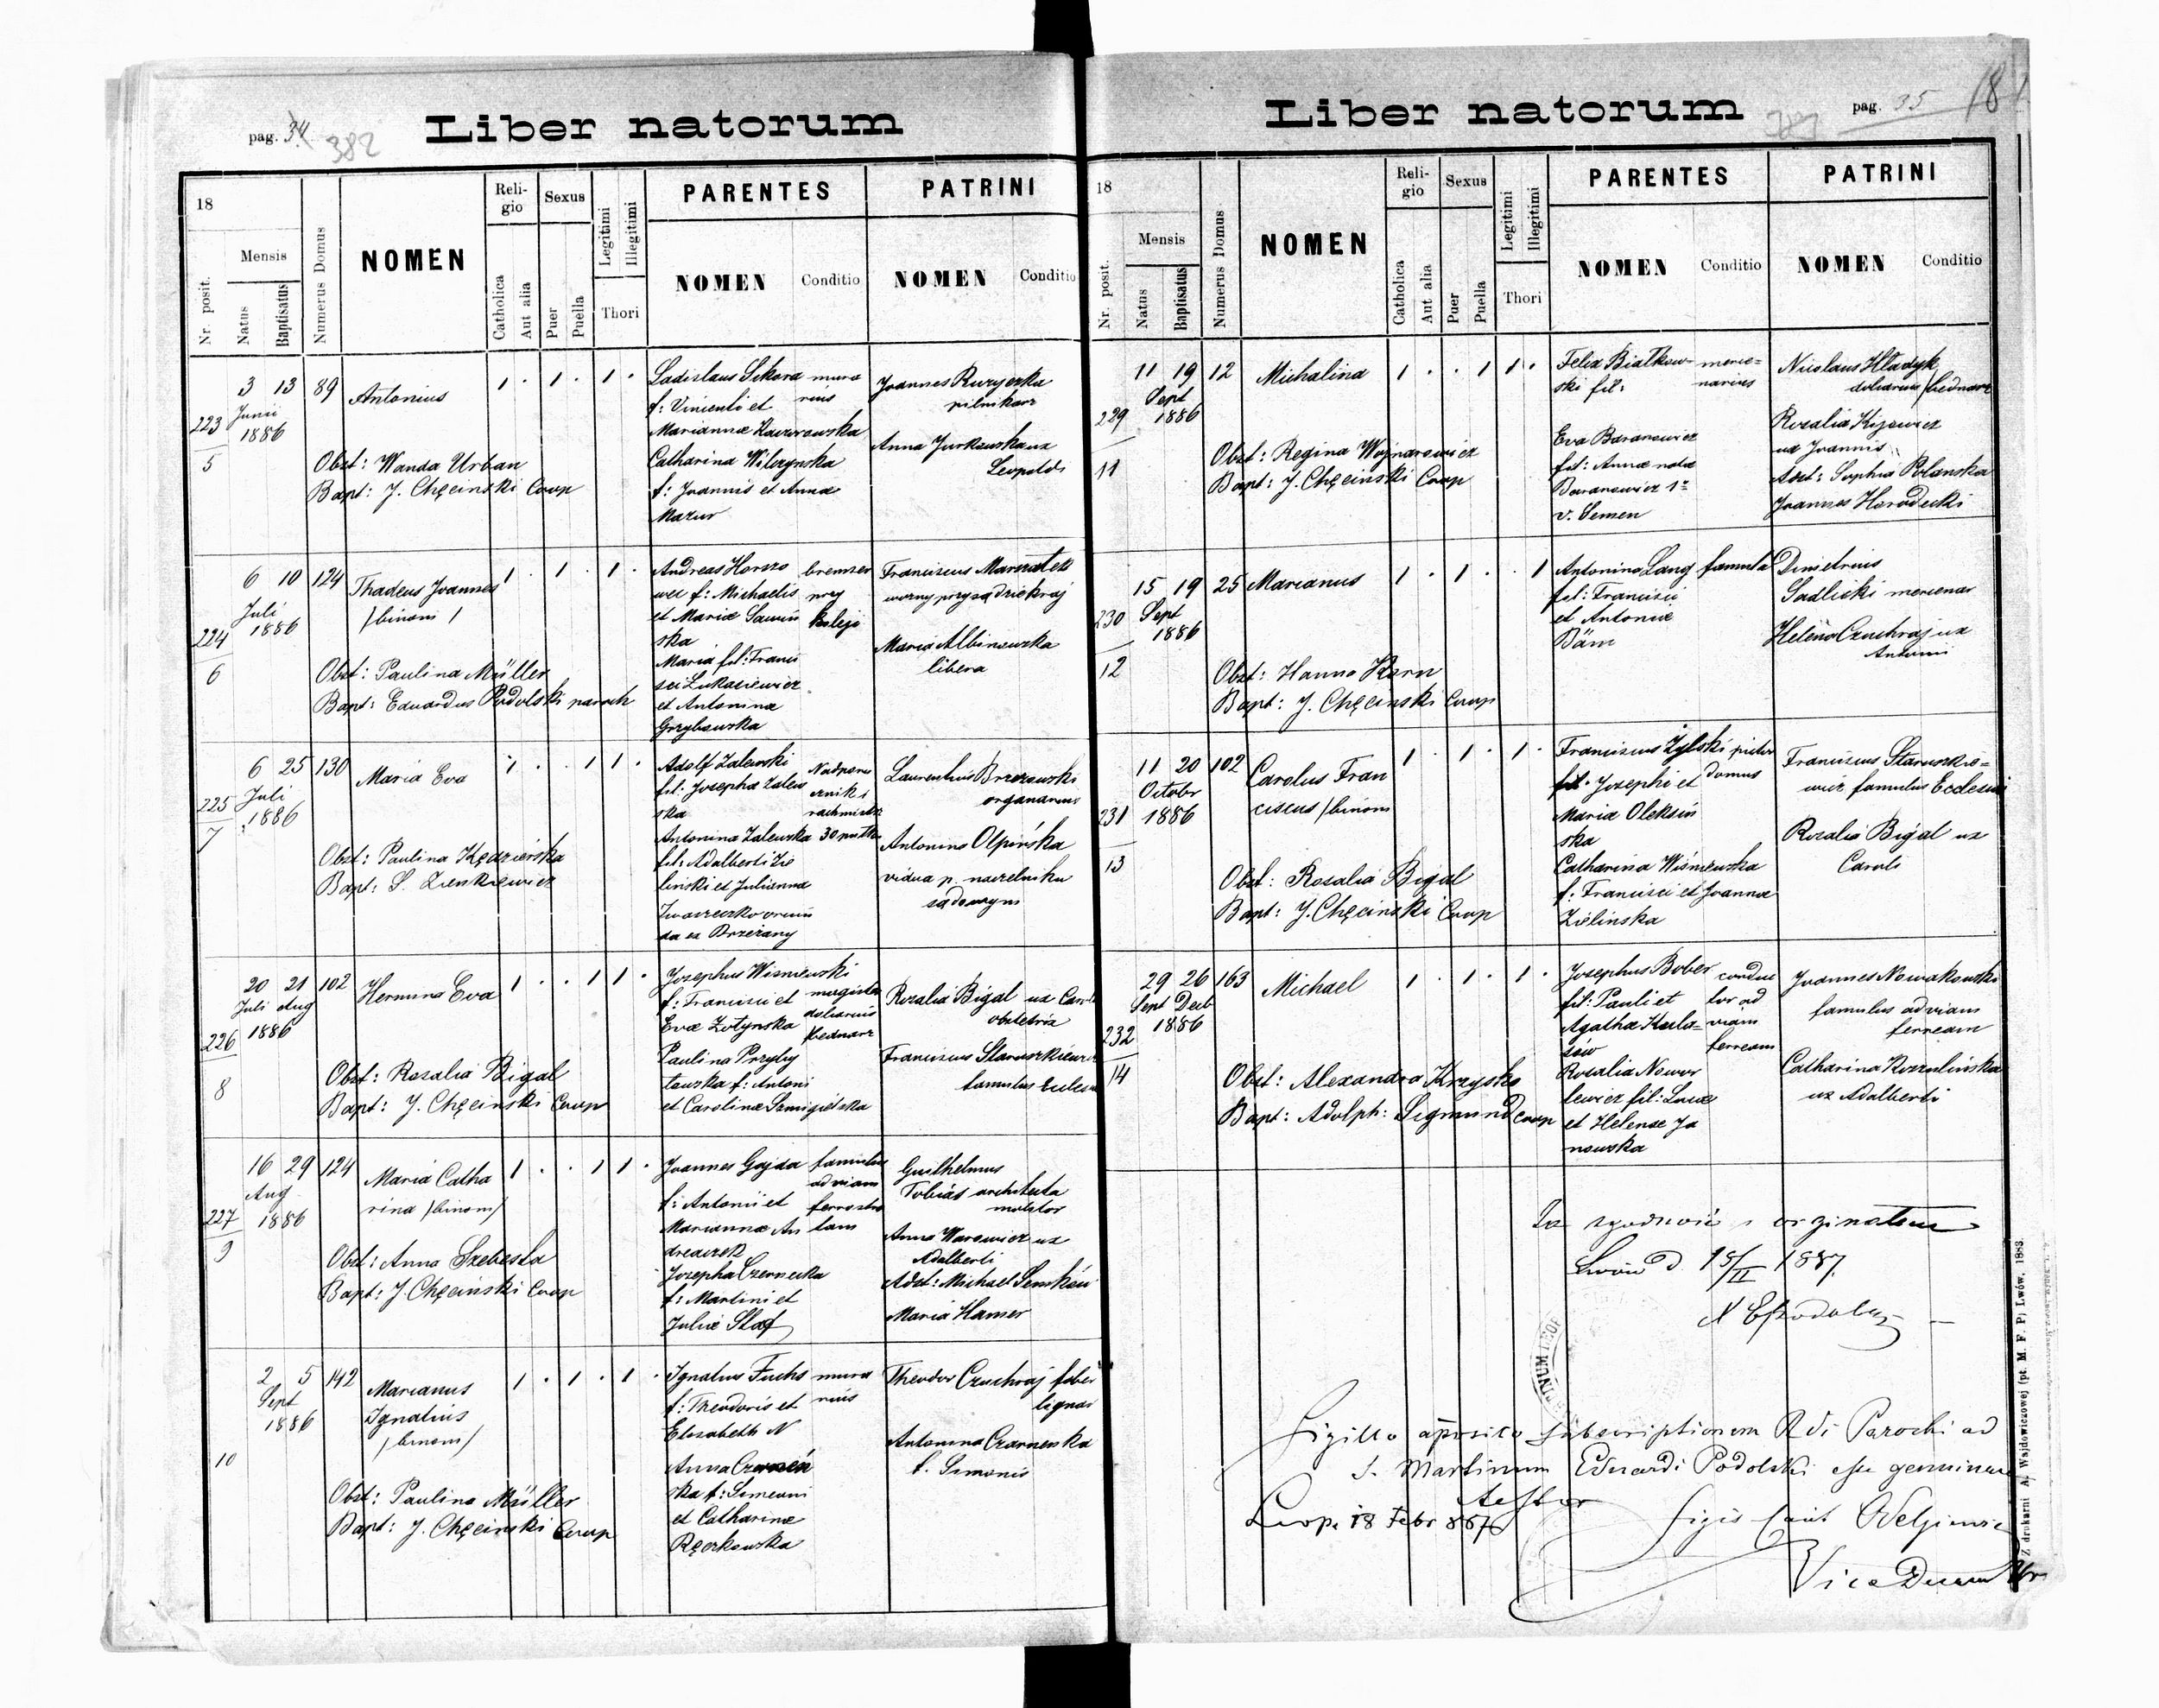 pag. 34
382
Liber natorum
18
Nr. posit.
Mensis
Natus
Baptisatus
Numerus Domus
NOMEN
Reli-
gio
Catholica
Aut alia
Sexus
Puer
Puella
Legitimi
Illegitimi
Thori
PARENTES
NOMEN
Conditio
PATRINI
NOMEN
Conditio
223
5
3 13
Junii
1886
89
Antonius
1 . 1 . 1 .
Obst: Wanda Urban
Bapt: J. Chęcinski Coop
Ladislaus Sikora
f: Vincenti et
Mariannæ
Catharina Wilczynska
f: Joannis et Annæ
Mazur
mura
rius
Joannes Ruzyczka
pilnikarz
Anna Jurkowska ux
Leopoldi
224
6
6 10
Juli
1886
124
Thadeus Joannes
/binom/
1 . 1 . 1 .
Obst: Paulina Müller
Bapt: Eduardus Podolski paroch
Andreas
f: Michaelis
et Mariæ
ska
Maria fil: Franci
sci Lukasiewicz
et Antoninæ
Grzybowska
bremzer
przy
koleji
Franciscus
Maria Albinowska
libera
225
7
6 25
Juli
1886
130
Maria Eva
1 . . 1 1 .
Obst: Paulina Kędzierska
Bapt: S. Zienkiewicz
Adolf Zalewski
fil: Josepha Zalew
ska
Antonina Zalewska
fil: Adalberti Zie
linski et Julianna
da ex Brzeżany
rachmistrz
30 pułku
Laurentius Brzozowski
organarius
Antonina Olpińska
vidua p. naczelniku
sądowym
226
8
20 21
Juli Aug
1886
102
Hermina Eva
1 . . 1 1 .
Obst: Rosalia Bigal
Bapt: J. Chęcinski Coop
Josephus Wisniewski
f: Francisci et
Evæ Zotynska
Paulina Przyby
towska f: Antoni
et Carolinæ Szmigielska
magister
doliarius
bednarz
Rozalia Bigal ux Caroli
obstetrix
Franciscus Staruszkiewicz
famulus Eccles
227
9
16 29
Aug
1886
124
Maria Catha
rina /binom/
1 . . 1 1 .
Obst: Anna Szebesta
Bapt: J. Chęcinski Coop
Joannes Gajda
f: Antonii et
Mariannæ An
dreaczek
Josepha Czernecka
f: Martini et
Juliæ Staf
famulus
ad viam
Guilhelmus
Tobias architecta
Anna Warowicz ux
Adalberti
Adst: Michael
Maria Hamer
10
2 5
Sept
1886
142
Marianus
Ignatius
/binom/
1 . 1 . 1 .
Obst: Paulina Müller
Bapt: J. Chęcinski Coop
Ignatius Fuchs
f: Theodoris et
Elisabeth N
Anna
ska f: Simeoni
et Catharinæ
Ręczkowska
mura
rius
Theodor Czuchraj faber
lignar
Antonina Czarneska
f. Simonis
pag. 35
Liber natorum
18
Nr. posit.
Mensis
Natus
Baptisatus
Numerus Domus
NOMEN
Reli-
gio
Catholica
Aut alia
Sexus
Puer
Puella
Legitimi
Illegitimi
Thori
PARENTES
NOMEN
Conditio
PATRINI
NOMEN
Conditio
229
11
11 19
Sept
1886
12
Michalina
1 . . 1 1 .
Obst: Regina Wojnarowicz
Bapt: J. Chęcinski Coop
Felix Białkow-
ski fil:
Eva Baranowicz
fil: Annæ natæ
Baranowicz
v. Semen
merce-
narius
Nicolaus Hładyk
doliarius /bednarz
Rozalia Kijowicz
ux Joannis
Adst: Sophia Polanska
Joannes Horodecki
230
12
15 19
Sept
1886
25
Marianus
1 . 1 . . 1
Obst: Hanna Korn
Bapt: J. Chęcinski Coop
Antonina Lang
fil: Francisci
et Antoniæ
Bäm
famula
Dimetrius
Sadlicki mercenar
Helena Czuchraj ux
Antonii
231
13
11 20
Octobr
1886
102
Carolus Fran
ciscus /binom
1 . 1 . 1 .
Obst: Rosalia Bigal
Bapt: J. Chęcinski Coop
Franciscus Zylski
fil: Josephi et
Maria Oleksiń
ska
Catharina Wiśniewska
f: Francisci et Joannæ
Zielinska
pictor
domus
Franciscus Staruszkie-
wicz famulus Ecclesiæ
Rozalia Bigal ux
Caroli
232
14
29 26
Sept Decb
1886
163
Michael
1 . 1 . 1 .
Obst: Alexandra Krzysko
Bapt: Adolph: Sigmund coop
Josephus Bober
fil: Pauli et
Agatha
Rosalia Nowor
lewicz fil: Lucæ
et Helenæ Ja
nowska
conduc
tor ad
viam
ferream
Joannes Nowakowski
famulus ad viam
ferream
Catharina Kozulinska
ux Adalberti
Za zgodność z orginałem
Lwów d. 15/II 1887.
Sigillo apposito subscriptionem Rdi Parochi ad
S. Martinum Eduardi Podolski esse genuinam
testor
Leop. 18 Febr 887
Z drukarni A. Wajdowiczowej (pt. M. F. P) Lwów. 1883.